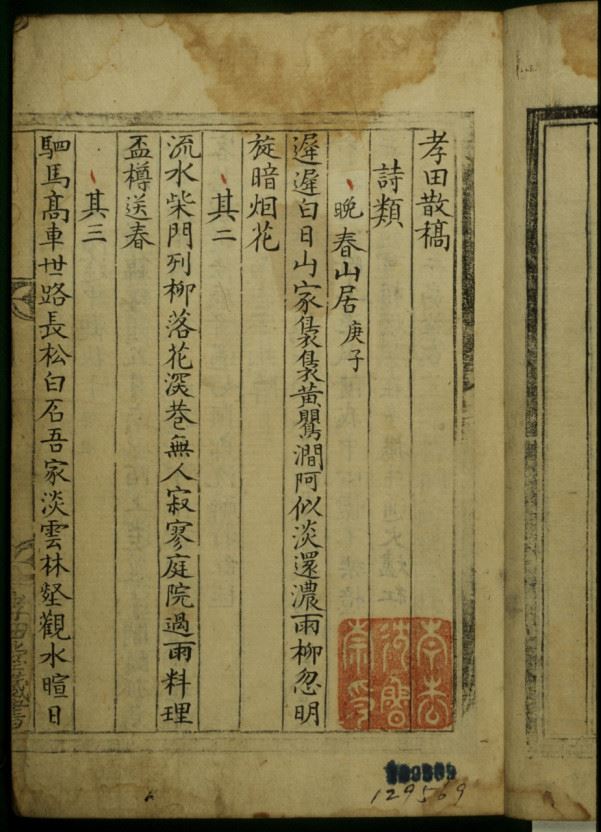 孝田散稿
詩類
晩春山居 庚子
遲遲白日山家裊裊黃鸎澗阿似淡還濃雨柳忽明
旋暗烟花
其二
流水柴門列柳落花深巷無人寂寥庭院過雨料理
盃樽送春
其三
駟馬髙車世路長松白石吾家淡雲林壑觀水暄日
129569